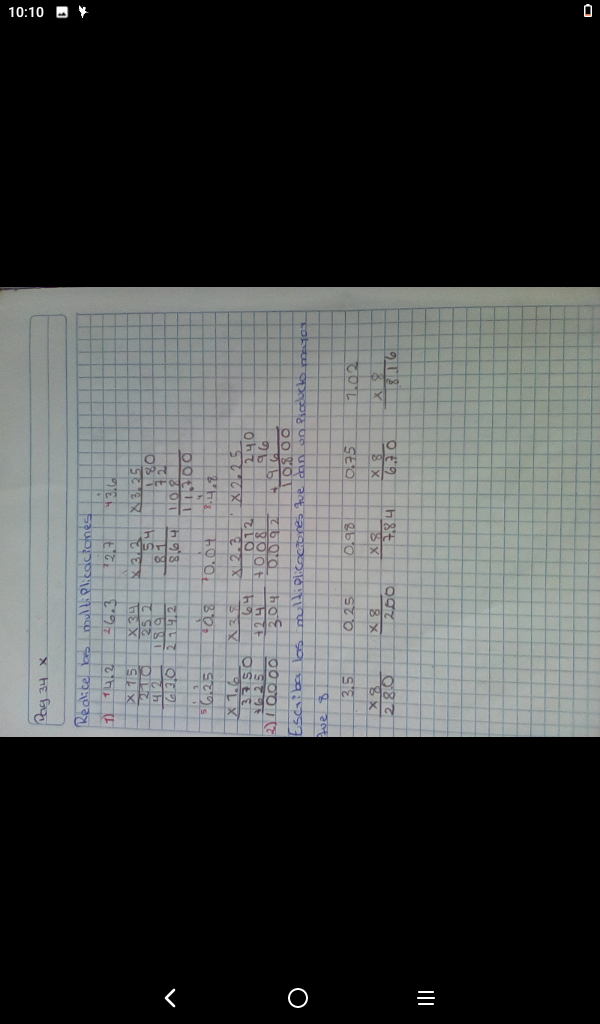 10:10
Pag 34 x
Realice las multiplicaciones
1) 4.2 6.3 2.7 3.6
x 15 x 34 x 3.2 x 3.25
210 25 2 54 180
42 189 81 72
63.0 214.2 8.64 108
11.700
6.25 0.8 0.04 4.8
x 1.6 x 3.8 x 2.3 x 2.25
3750 64 012 240
+625 +24 +008 96
10.000 3.04 0.092 + 96
10.800
2) Escriba las multiplicaciones que dan un producto mayor
que 8
3.5 0.25 0.98 0.75 1.02
x 8 x 8 x 8 x 8 x 8
28.0 2.00 7.84 6.70 8.16